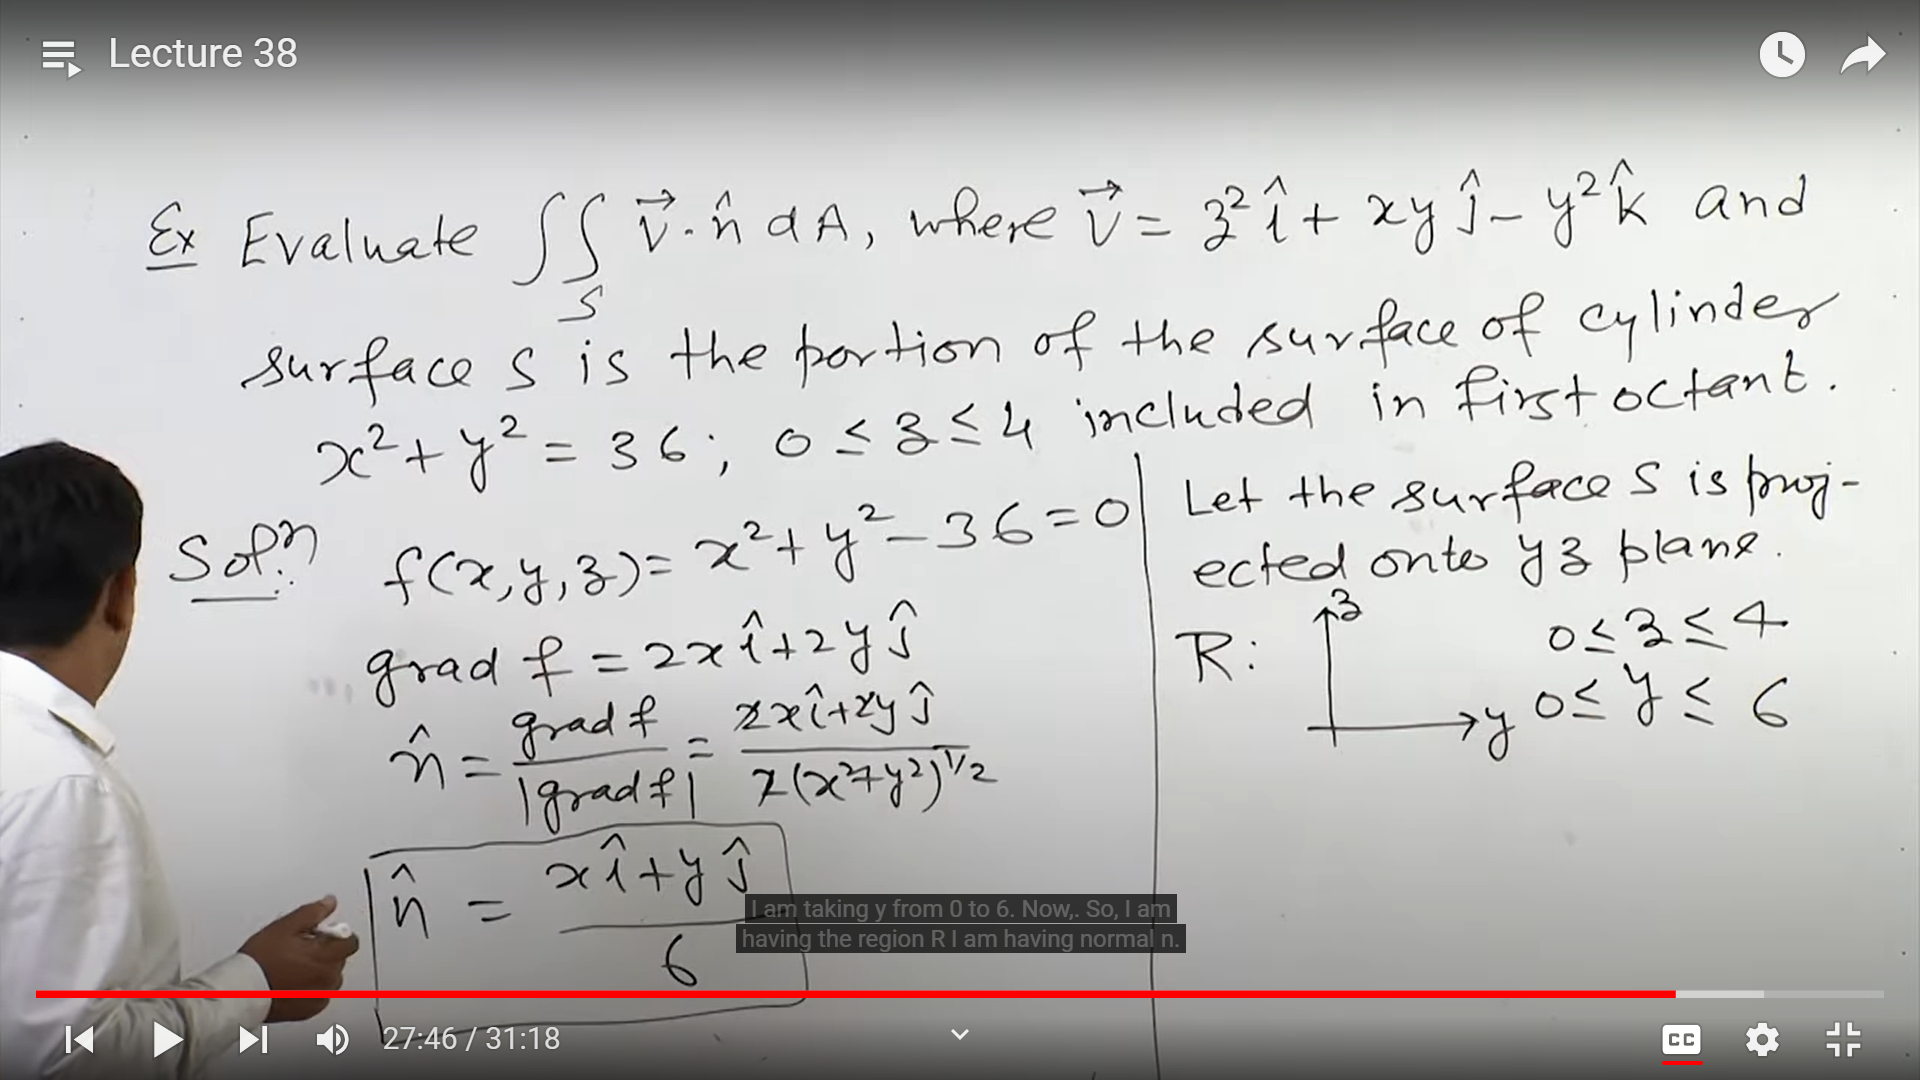 Lecture 38
Ex Evaluate ∬_S v⃗·n̂ dA, where v⃗ = z² î + xy ĵ − y² k̂ and
surface S is the portion of the surface of cylinder
x² + y² = 36; 0 ≤ z ≤ 4 included in first octant.
Solⁿ: f(x,y,z) = x² + y² − 36 = 0
grad f = 2x î + 2y ĵ
n̂ = grad f / |grad f| = (2x î + 2y ĵ) / 2(x² + y²)^1/2
n̂ = (x î + y ĵ) / 6
Let the surface S is proj-
ected onto yz plane.
R: z 0 ≤ z ≤ 4
y 0 ≤ y ≤ 6
I am taking y from 0 to 6. Now,. So, I am
having the region R I am having normal n.
27:46 / 31:18
CC